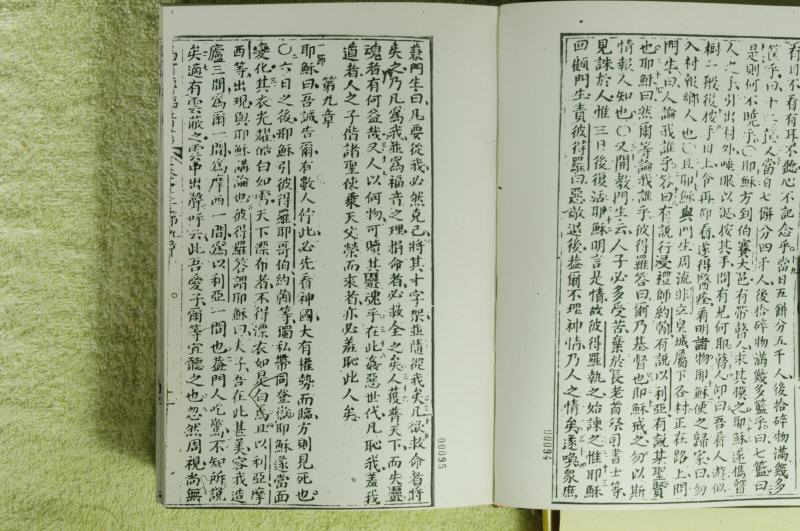 有目不看有耳不聽心不記念乎當日五餅分五千人後拾碎物滿幾多
筐乎曰十二筐人當日七餅分四千人後拾碎物滿幾多籃乎曰七籃曰
是則何不曉乎〇耶穌方到伯賽大邑有帶瞽人求其摸之耶穌攜瞽
人之手引出村外唾眼以
按其手問有見何耶瞽人仰曰吾看人遊似
樹二般後按手目上令再仰看遂得醫痊看明諸物耶穌使之歸家曰勿
入村報鄉人也〇且耶穌與門生周流非立皇城屬下各村正在路上問
門生曰人論我誰乎答曰有說行浸禮師約翰有說以利亞有說某聖賢
也耶穌曰然爾等論我誰乎彼得羅答曰爾乃基督也耶穌戒之勿以斯
情報人知也〇又開教門生云人子必多受苦棄於長老首祭司書士等
見誅於人惟三日後復活耶穌明言是情故彼得羅執之始諫之惟耶穌
回顧門生責彼得羅曰惡敵退後蓋爾不理神情乃人之情矣遂喚衆庶
00094
暨門生曰凡要從我必然克己將其十字架並隨從我矣凡欲救命者將
失之乃凡爲我並爲福音之理捐命者必救全之矣人獲普天下而失靈
魂者有何益哉又人以何物可贖其靈魂乎在此姦惡世代凡恥我羞我
道者人之子偕諸聖使乘天父榮而來者亦必羞恥此人矣
第九章
一節
耶穌曰吾誠告爾有數人佇此必先看神國大有權勢而臨方則見死也
〇六日之後耶穌引彼得羅耶哥伯約翰等獨私帶同登嶽耶穌遂當面
變化其衣光耀皓白如雪天下漂布者不得漂衣如是白焉且以利亞摩
西等出現與耶穌講論也彼得羅答謂耶穌曰夫子吾在此甚美容我造
廬三間爲爾一間爲摩西一間爲以利亞一間也蓋門人吃驚不知所說
矣適有雲蔽之雲中出聲呼云此吾愛子爾等宜聽之也忽然周視尚無
00095